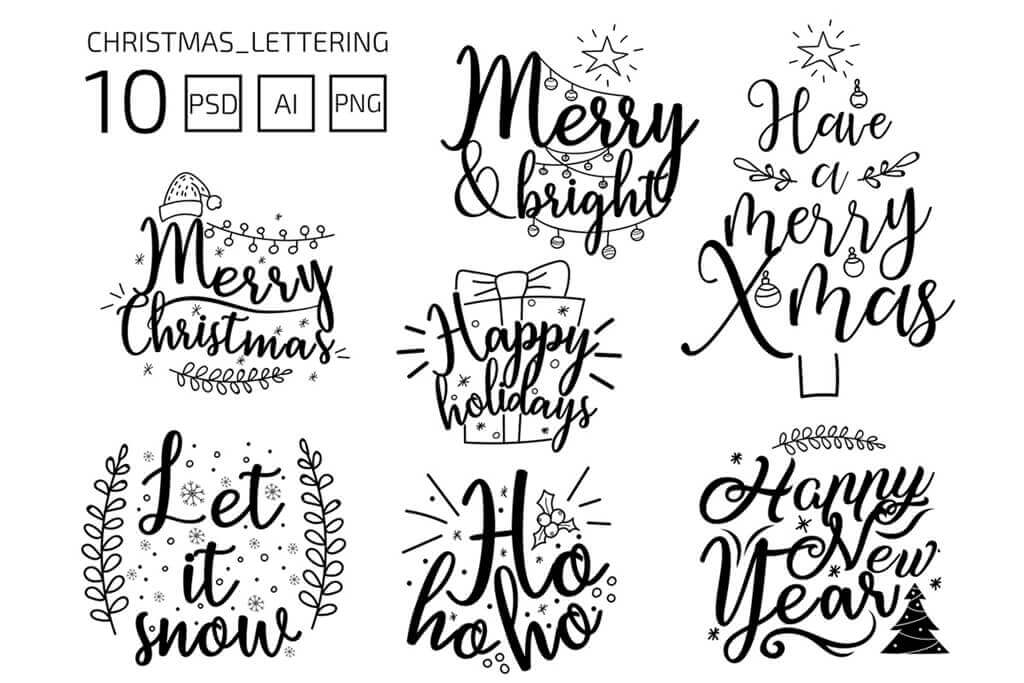 CHRISTMAS_LETTERING
10 PSD AI PNG
Merry
& bright
Have
a
merry
Xmas
Merry
Christmas
Happy
holidays
Let
it
snow
Ho
ho ho
Happy
New
Year